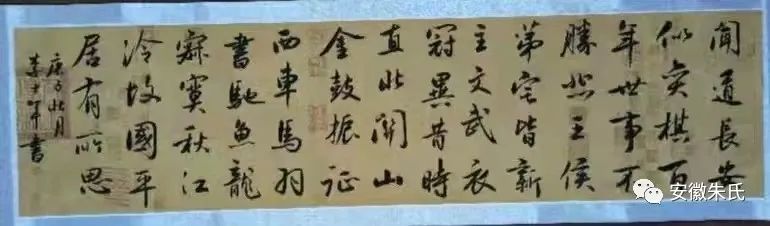 聞道長安
似奕棋百
年世事不
勝悲王侯
第宅皆新
主文武衣
冠異昔時
直北關山
金鼓振征
西車馬羽
書馳魚龍
寂寞秋江
冷故國平
居有所思
庚子月
李士年書
安徽朱氏